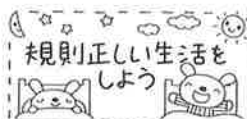 規則正しい生活を
しよう